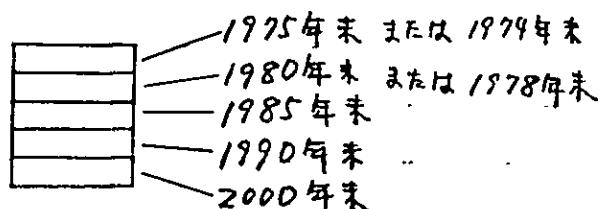 1975年末 または 1974年末
1980年末 または 1978年末
1985年末
1990年末
2000年末